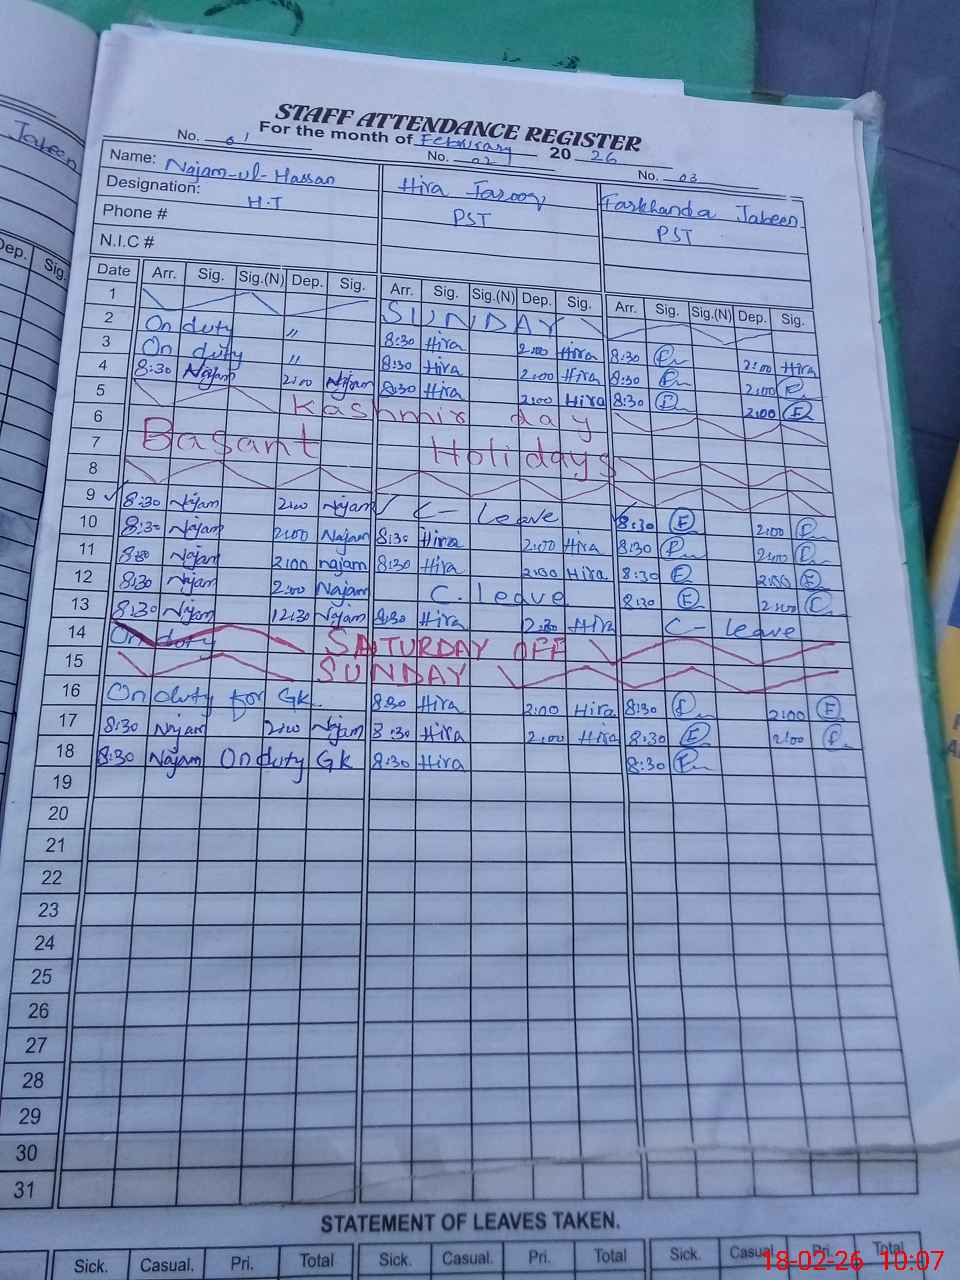 Jabeen
Dep. Sig.
STAFF ATTENDANCE REGISTER
For the month of February 20 26
No. 01 No. 02 No. 03
Name: Najam-ul-Hassan Hira Farooq Farkhanda Jabeen
Designation: H.T PST PST
Phone #
N.I.C #
Date Arr. Sig. Sig.(N) Dep. Sig. Arr. Sig. Sig.(N) Dep. Sig. Arr. Sig. Sig.(N) Dep. Sig.
1 SUNDAY
2 On duty " 8:30 Hira 2:00 Hira 8:30 2:00 Hira
3 On duty " 8:30 Hira 2:00 Hira 8:30 2:00
4 8:30 Najam 2:00 Najam 8:30 Hira 2:00 Hira 8:30 2:00 F
5 Kashmir day
6 Basant Holidays
7
8
9 8:30 Najam 2:00 Najam C- Leave 8:30 F 2:00
10 8:30 Najam 2:00 Najam 8:30 Hira 2:00 Hira 8:30 2:00
11 8:30 Najam 2:00 najam 8:30 Hira 2:00 Hira 8:30 F 2:00 F
12 8:30 Najam 2:00 Najam C. leave 8:30 F 2:00
13 8:30 Najam 12:30 Najam 8:30 Hira Hira C- leave
14 On duty SATURDAY OFF
15 SUNDAY
16 On duty for GK. 8:30 Hira 2:00 Hira 8:30 2:00 F
17 8:30 Najam 2:00 Najam 8:30 Hira 2:00 Hira 8:30 F 2:00
18 8:30 Najam On duty GK 8:30 Hira 8:30
19
20
21
22
23
24
25
26
27
28
29
30
31
STATEMENT OF LEAVES TAKEN.
Sick. Casual. Pri. Total Sick. Casual. Pri. Total Sick. Casual. Pri. Total
18-02-26 10:07